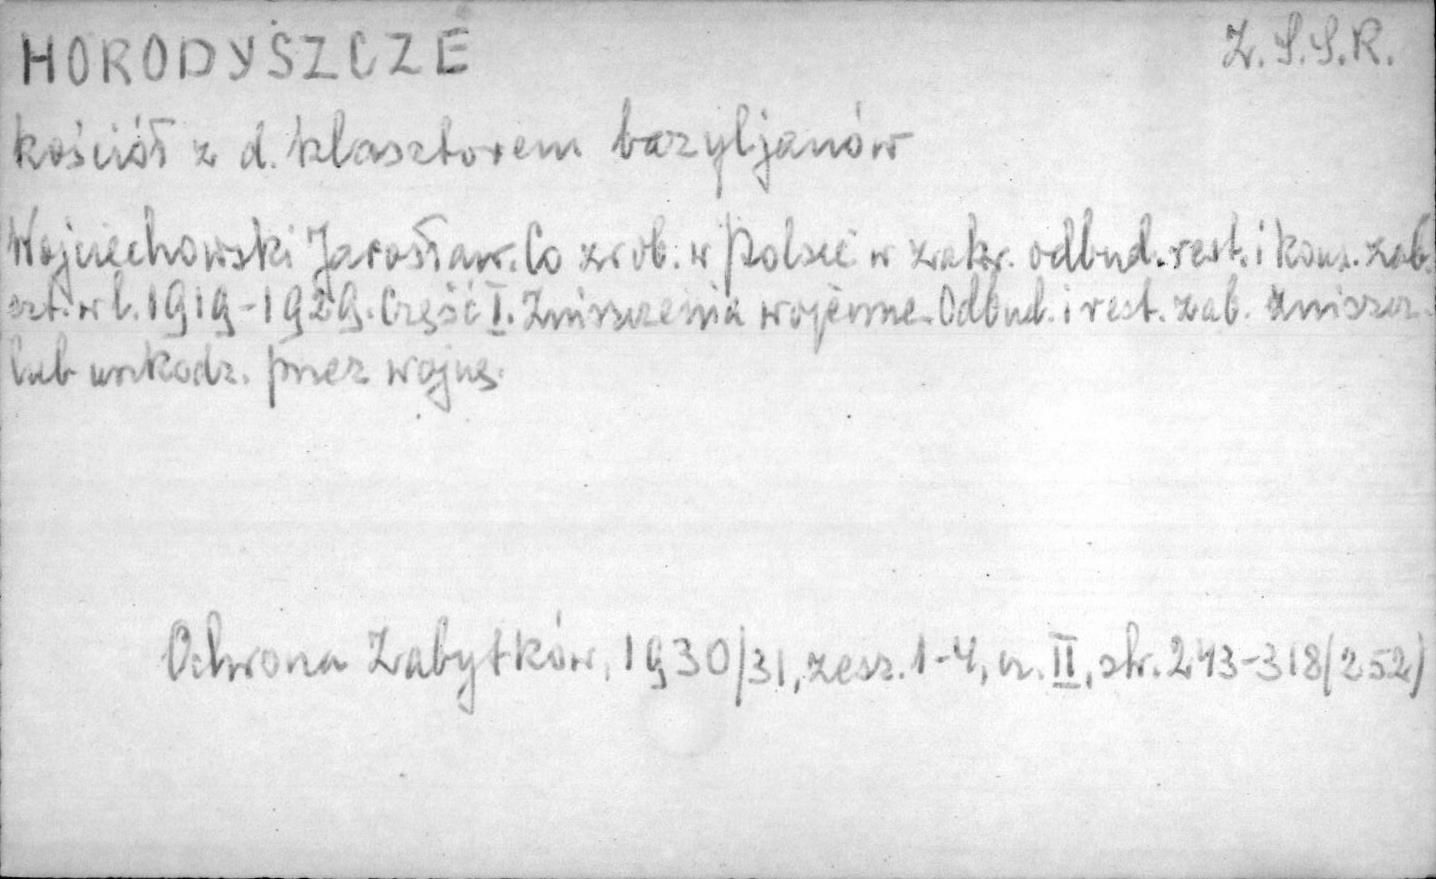 HORODYSZCZE
Z.S.S.R.
kościół z d. klasztorem bazyljanów
Wojciechowski Jarosław. Co zrob. w Polsce w zakr. odbud. rest. i kons. zab.
szt. w l. 1919-1929. Część I. Zniszczenia wojenne. Odbud. i rest. zab. zniszcz.
lub uszkodz. przez wojnę.
Ochrona Zabytków, 1930/31, zesz. 1-4, cz. II, str. 243-318/252)